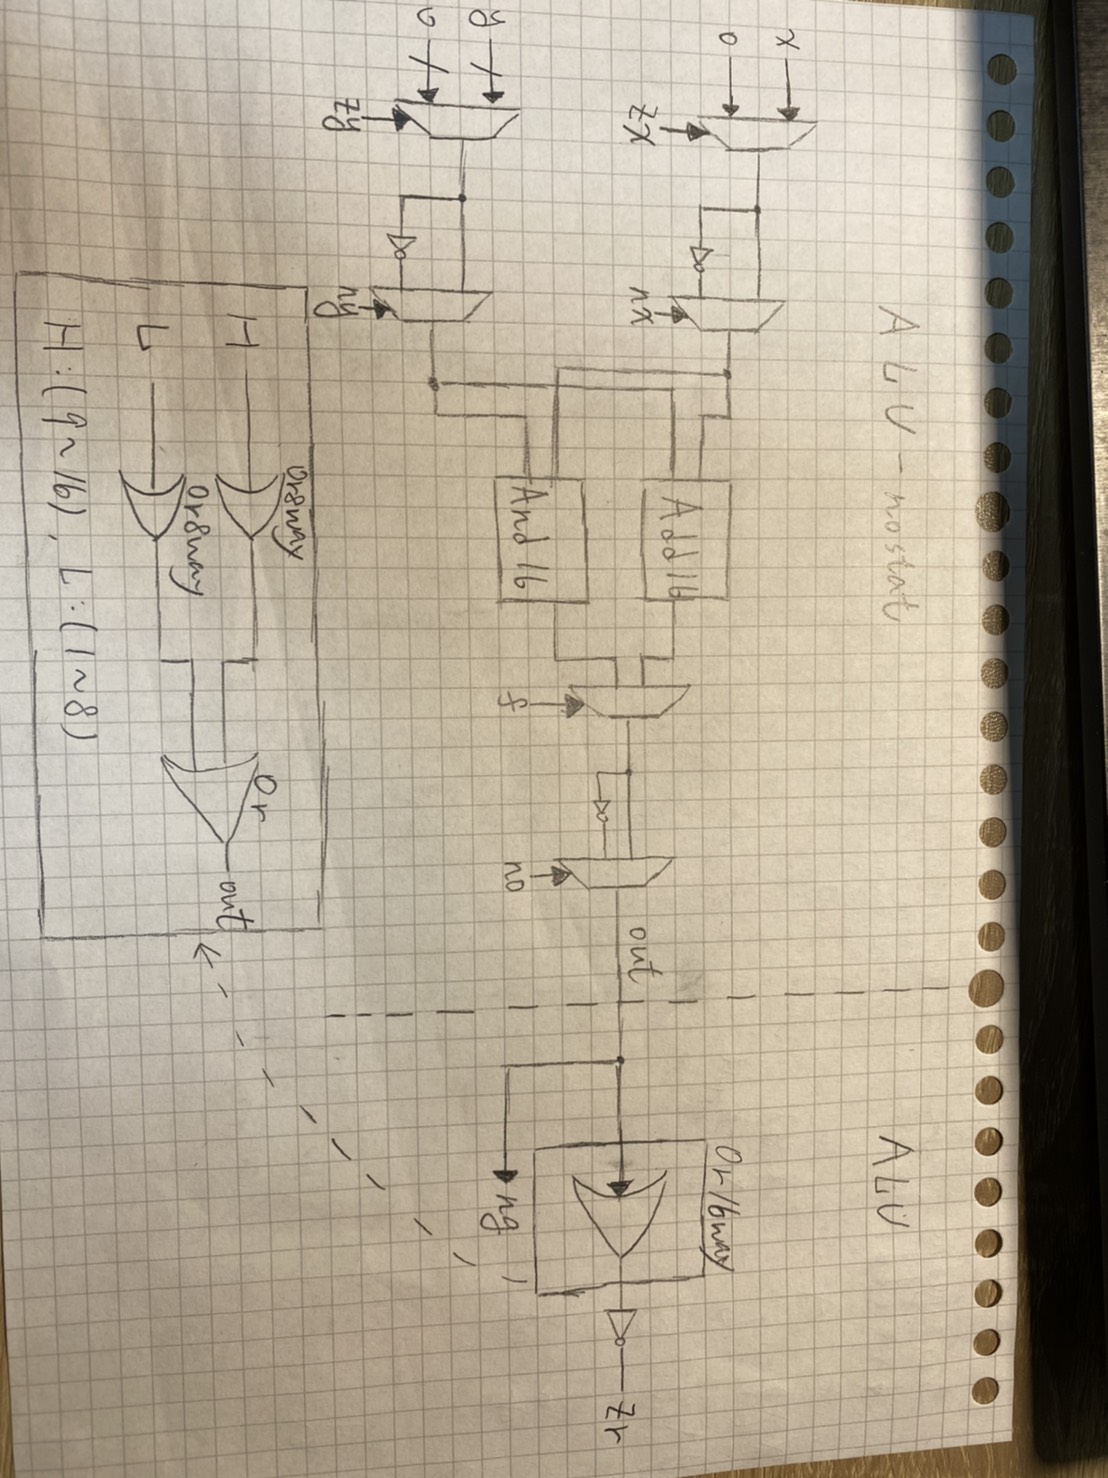 ALU-nostat
ALU
x
0
zx
nx
Add16
And16
f
no
out
Or16way
zr
ng
y
0
zy
ny
Or8way
H
Or8way
L
Or
out
H:(9~16), L:(1~8)